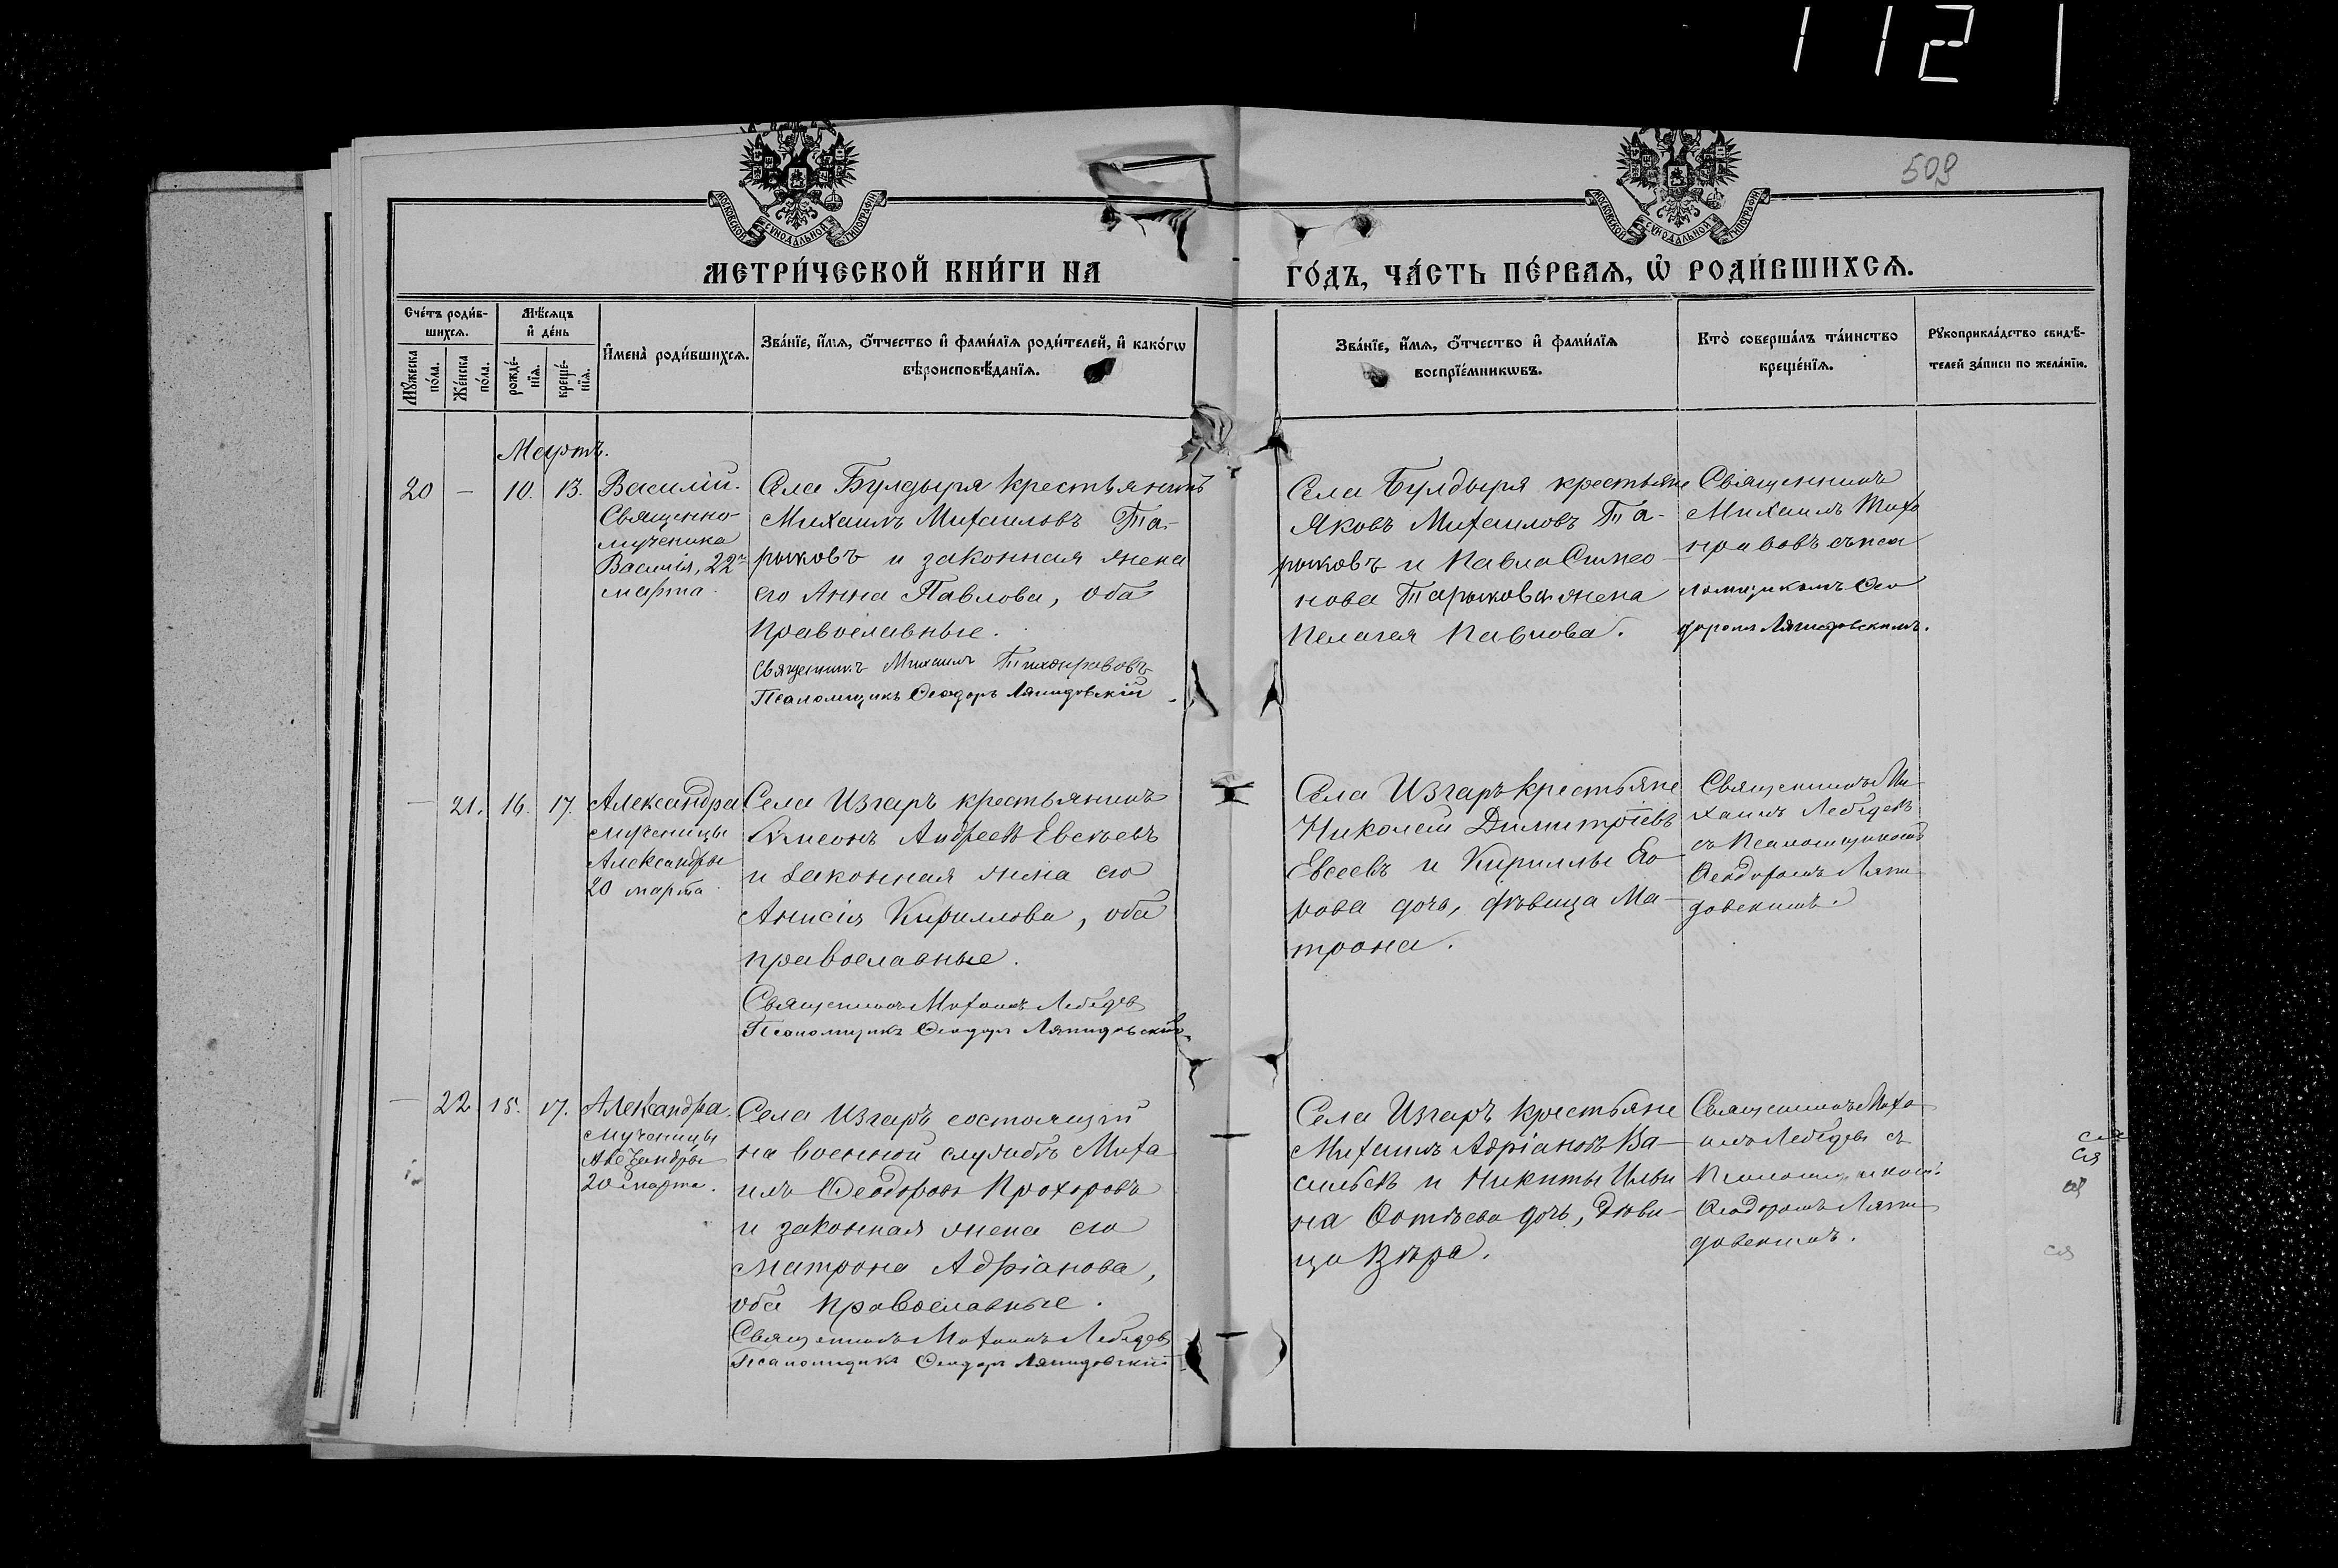 1 1 2 1
509
МОСКОВСКОЙ СѴНОДАЛЬНОЙ ТИПОГРАФІИ
МОСКОВСКОЙ СѴНОДАЛЬНОЙ ТИПОГРАФІИ
МЕТРИ́ЧЕСКОЙ КНИ́ГИ НА
ГО́ДЪ, ЧА́СТЬ ПЕ́РВАѦ, Ѡ҆ РОДИ́ВШИХСѦ.
Сче́тъ роди́в-
шихсѧ.
Мѣ́сѧцъ
и҆ де́нь
Мꙋ́жеска
по́ла.
Же́нска
по́ла.
рожде́-
нїѧ.
креще́-
нїѧ.
И҆мена̀ роди́вшихсѧ.
Зва́нїе, и҆́мѧ, ѻ҆́тчество и҆ фами́лїѧ роди́телей, и҆ како́гѡ
вѣроисповѣ́данїѧ.
Зва́нїе, и҆́мѧ, ѻ҆́тчество и҆ фами́лїѧ
воспрїе́мникѡвъ.
Кто̀ соверша́лъ та́инство
креще́нїѧ.
Рꙋкоприкла́дство свидѣ́-
телей за́писи по жела́нїю.
Мартъ.
20 — 10. 13.
Василій.
Священно-
мученика
Василія, 22го
марта.
Села Булдыря крестьянинъ
Михаилъ Михаиловъ Та-
рыковъ и законная жена
его Анна Павлова, оба
православные.
Священникъ Михаилъ Тихонравовъ
Псаломщикъ Ѳеодоръ Ляпидовскій
Села Булдыря крестьяне
Яковъ Михаиловъ Та-
рыковъ и Павла Симео
нова Тарыкова жена
Пелагея Павлова.
Священникъ
Михаилъ Тихо
нравовъ съ пса
ломщикомъ Ѳео
доромъ Ляпидовскимъ.
— 21. 16. 17.
Александра
мученицы
Александры
20 марта.
Села Изгаръ крестьянинъ
Симеонъ Андреевъ Евсѣевъ
и законная жена его
Анисія Кириллова, оба
православные.
Священникъ Михаилъ Лебедевъ
Псаломщикъ Ѳеодоръ Ляпидовскій
Села Изгаръ крестьяне
Николай Димитріевъ
Евсеевъ и Кириллы Его
рова дочь, дѣвица Ма-
трона.
Священникъ Ми
хаилъ Лебедевъ
съ Псаломщикомъ
Ѳеодоромъ Ляпи
довскимъ.
— 22 15. 17.
Александра.
мученицы
Александры
20 марта.
Села Изгаръ состоящій
на военной службѣ Миха
илъ Ѳеодоровъ Прохоровъ
и законная жена его
Матрона Адріанова,
оба православные.
Священникъ Михаилъ Лебедевъ
Псаломщикъ Ѳеодоръ Ляпидовскій
Села Изгаръ крестьяне
Михаилъ Адріановъ Ва-
сильевъ и Никиты Ильи
на дочь, дѣви-
ца Вѣра.
Священникъ Миха
илъ Лебедевъ съ
Псаломщикомъ
Ѳеодоромъ Ляпи
довскимъ.